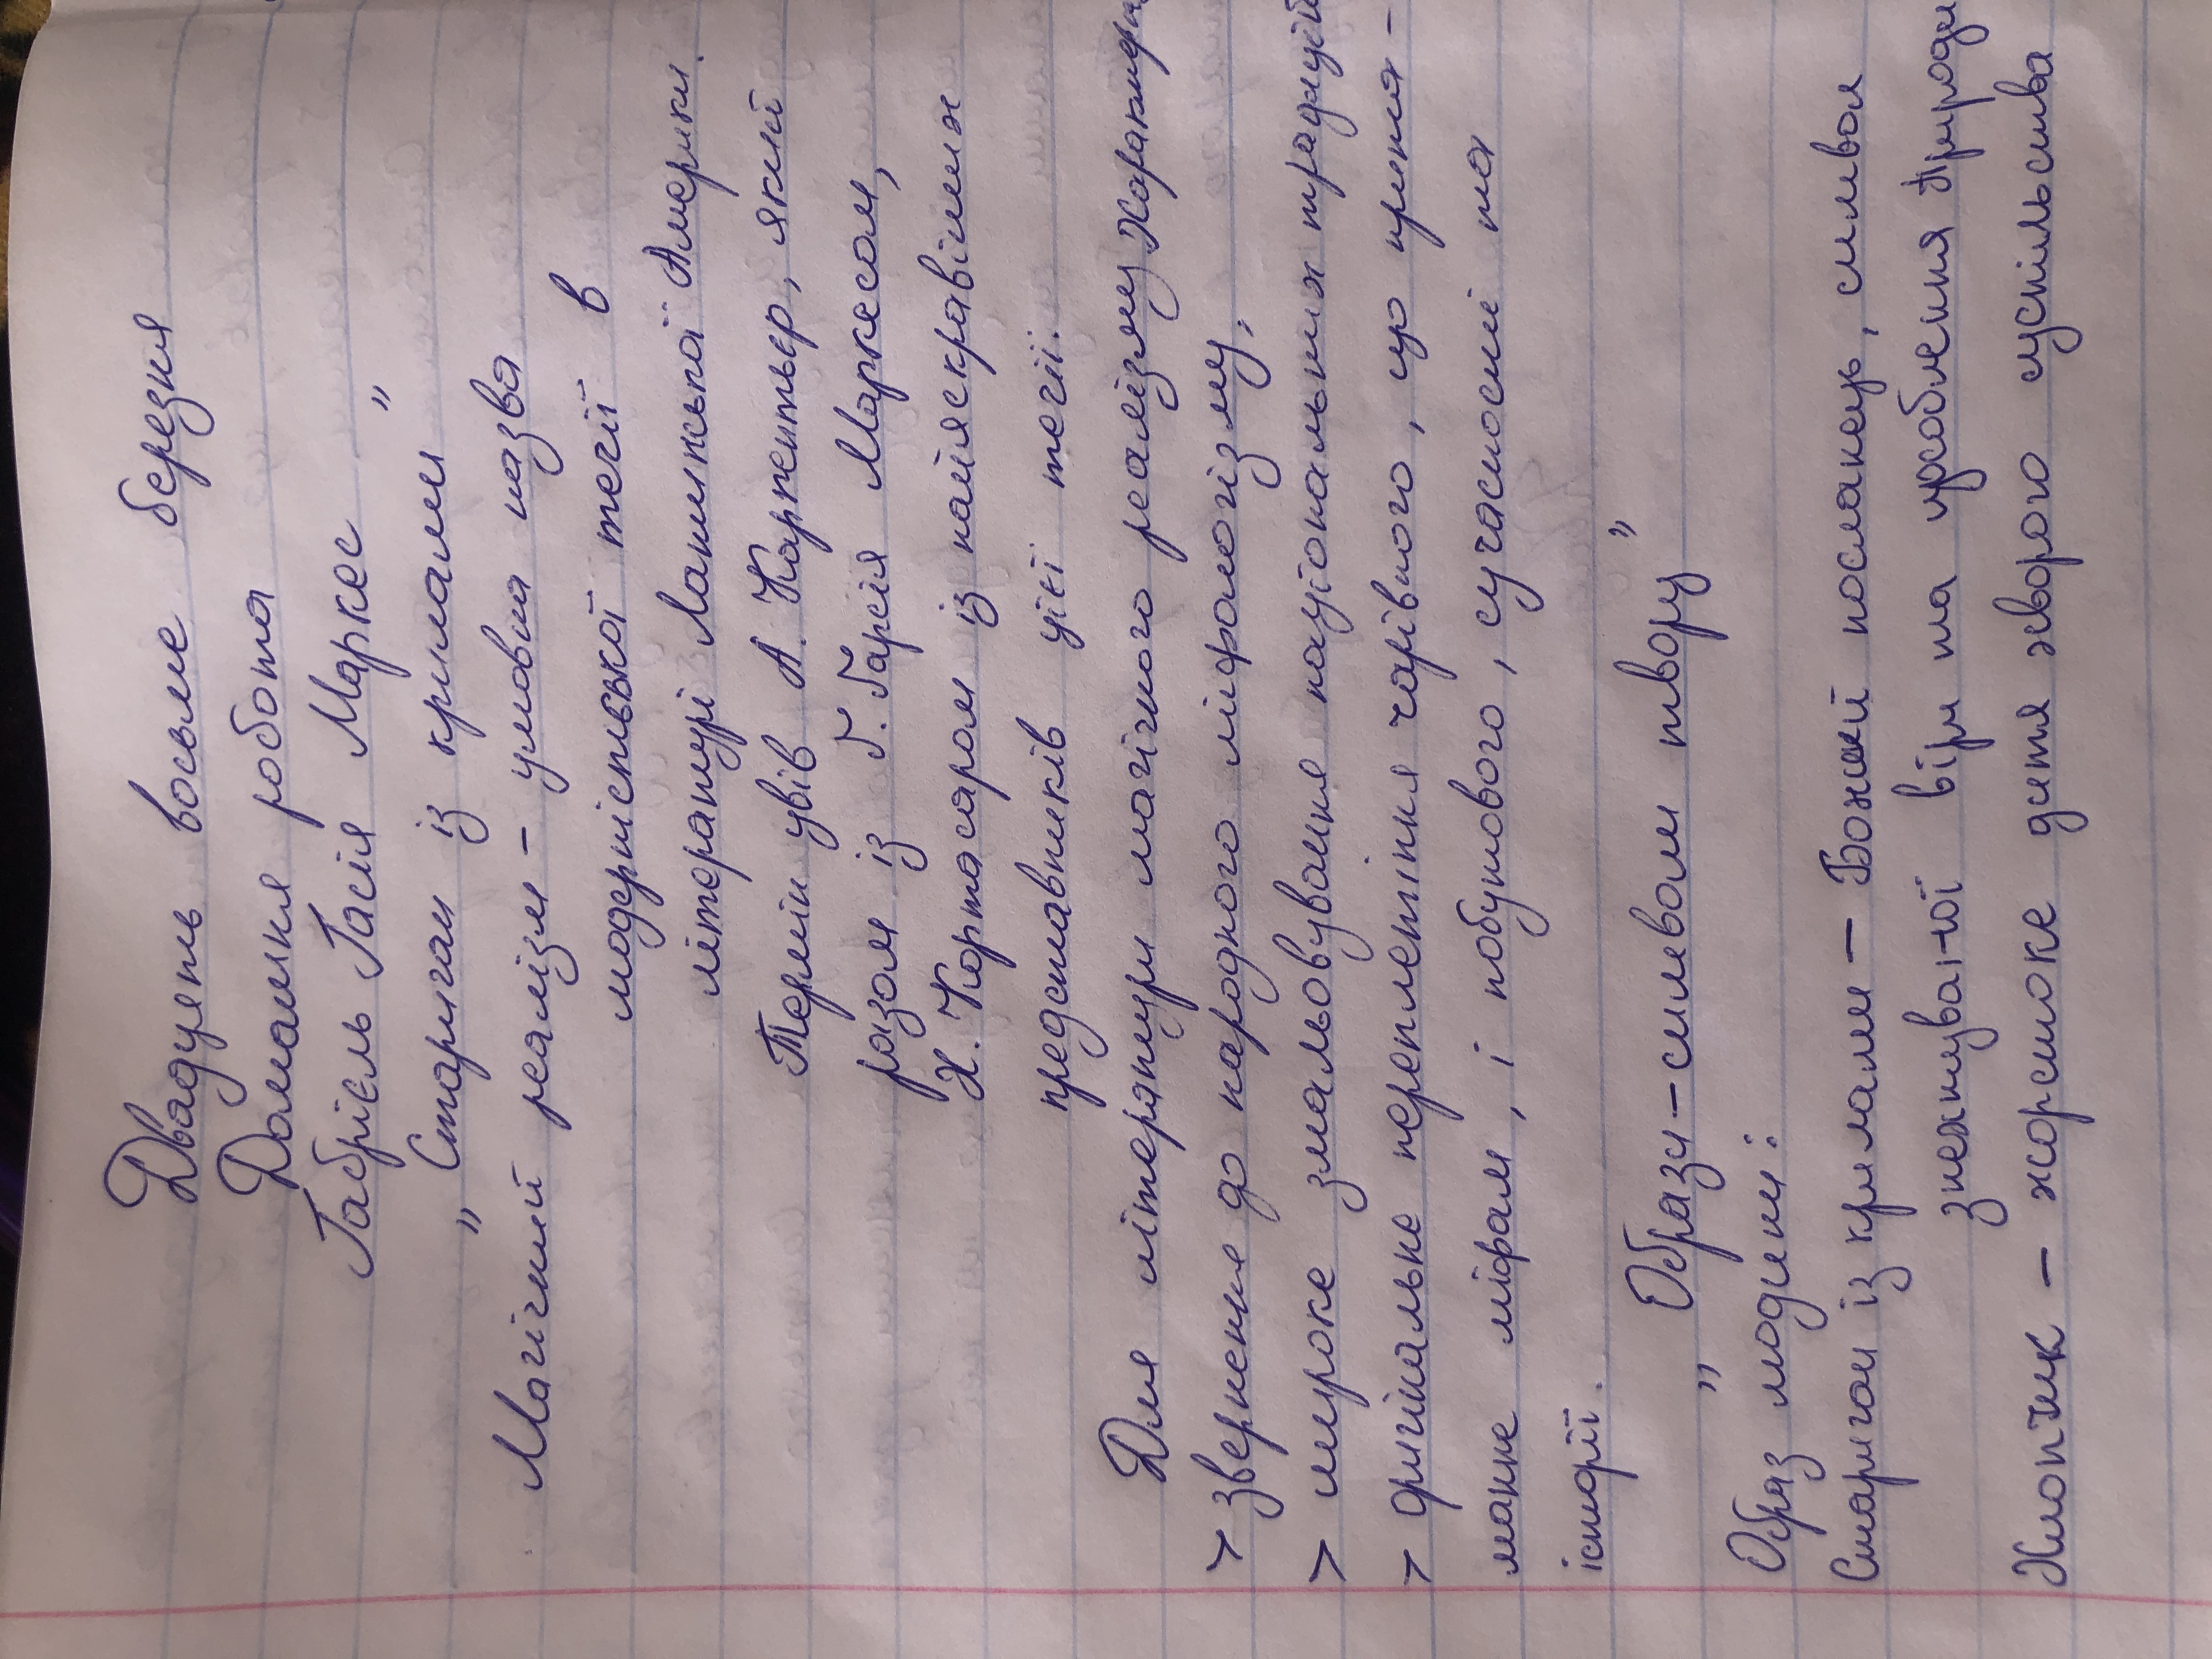 Двадцять восьме березня
Домашня робота
Габрієль Гасія Маркес
„Стариган із крилами"
Магічний реалізм – умовна назва
модерністської течії в
літературі Латинської Америки.
Термін увів А. Карпентьєр, який
разом із Г. Гарсія Маркесом,
Х. Кортасаром із найяскравіших
представників цієї течії.
Для літератури магічного реалізму характерн
> звернення до народного міфологізму,
> широке змальовування національних традицій
> оригінальне переплетіння чарівного, що прита-
манне міфам, і побутового, сучасності та
історії.
„Образи-символи твору"
Образ людини:
Стариган із крилами – Божий посланець, символ
знехтуваної віри та уособлення природи
Хлопчик – жорстоке дитя хворого суспільства